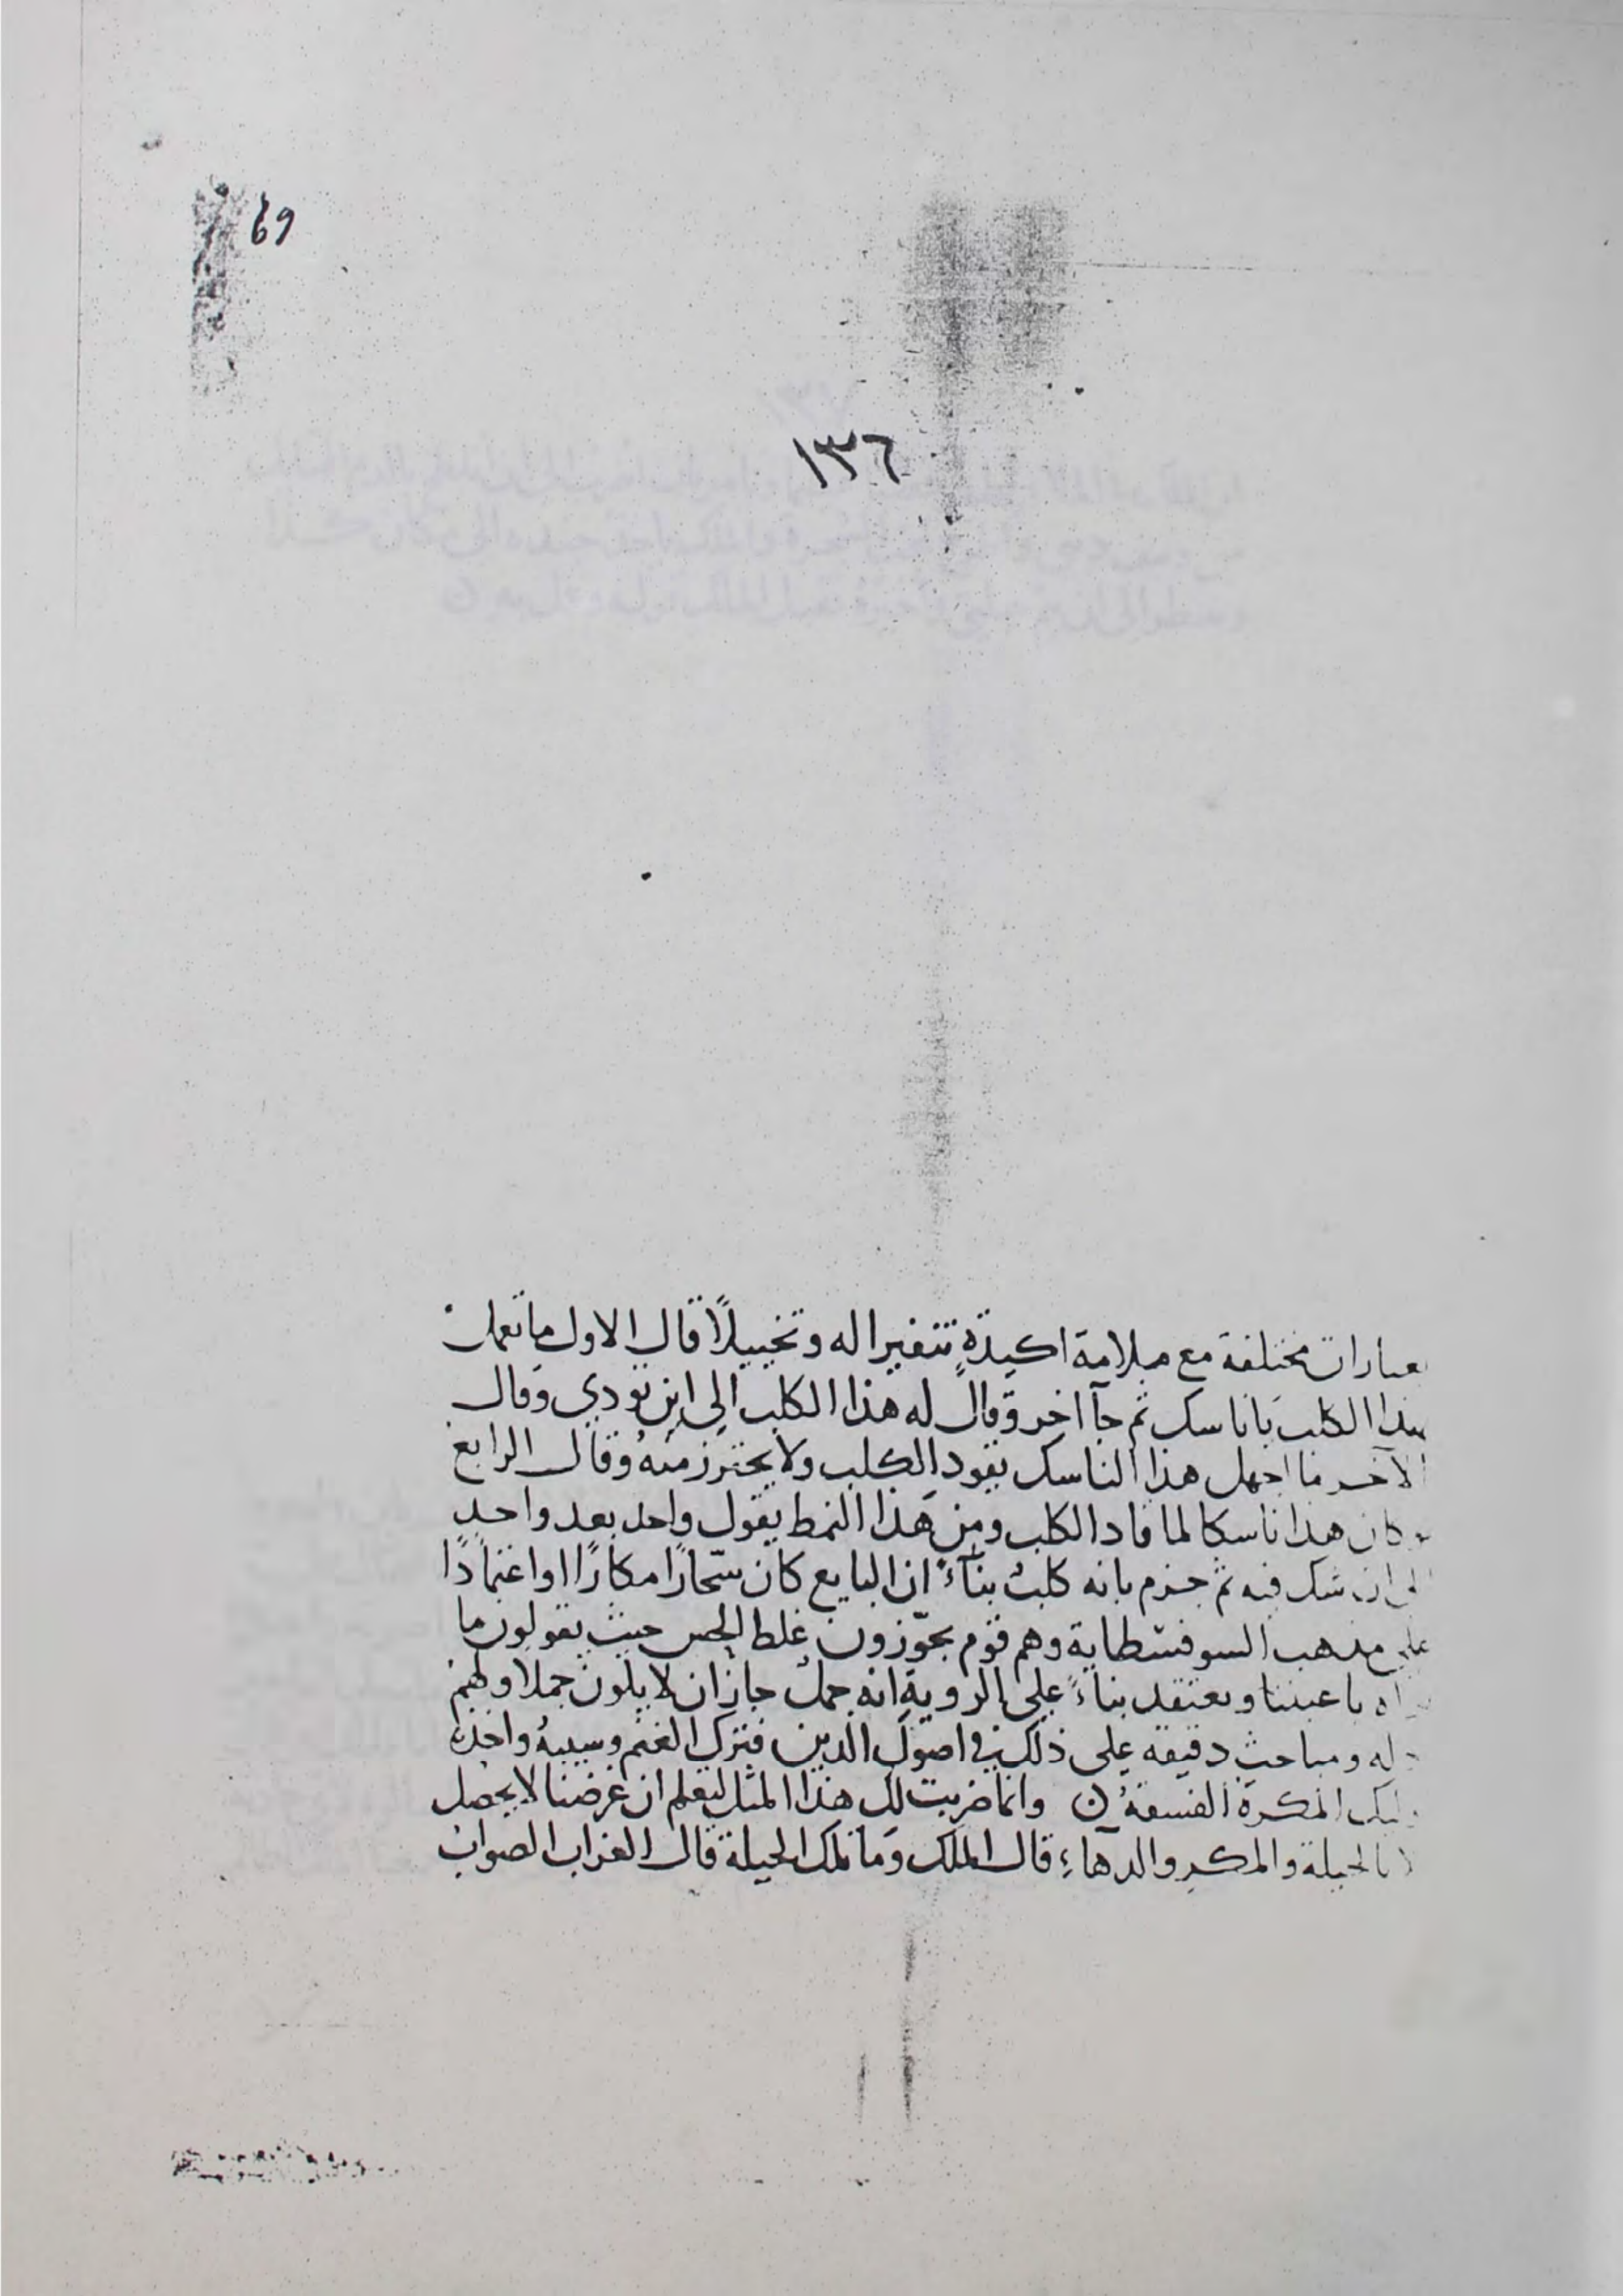 69
١٣٦
عبارات مختلفة مع ملامة اكيدةٍ تنفيرا له وتخييلًا قال الاول ما تعمل
بهذا الكلب يا ناسك ثم جآ اخر وقال له هذا الكلب الى اين تودي وقال
الآخر ما اجهل هذا الناسك يقود الكلب ولا يحترز منه وقال الرابع
كان هذا ناسكا لما قاد الكلب ومن هذا النمط يقول واحد بعد واحدٍ
الى ان شك فيه ثم جزم بانه كلبٌ بنآءً ان البايع كان سحّارًا مكارًا او اعتمادًا
على مذهب السوفسطاية وهم قوم يجوّزون غلط الحس حيث يقولون ما
نراه باعيننا ونعتقد بناءً على الروية انه جملٌ جاز ان لا يكون جملا ولهم
ادلة ومباحث دقيقة على ذلك في اصول الدين فترك الغنم وسيبهُ واخذه
اوليك المكرة الفسقةُ ن وانما ضربت لك هذا المثل ليعلم ان غرضنا لا يحصل
الا بالحيلة والمكر والدهاءِ قال الملك وما تلك الحيلة قال الغراب الصواب